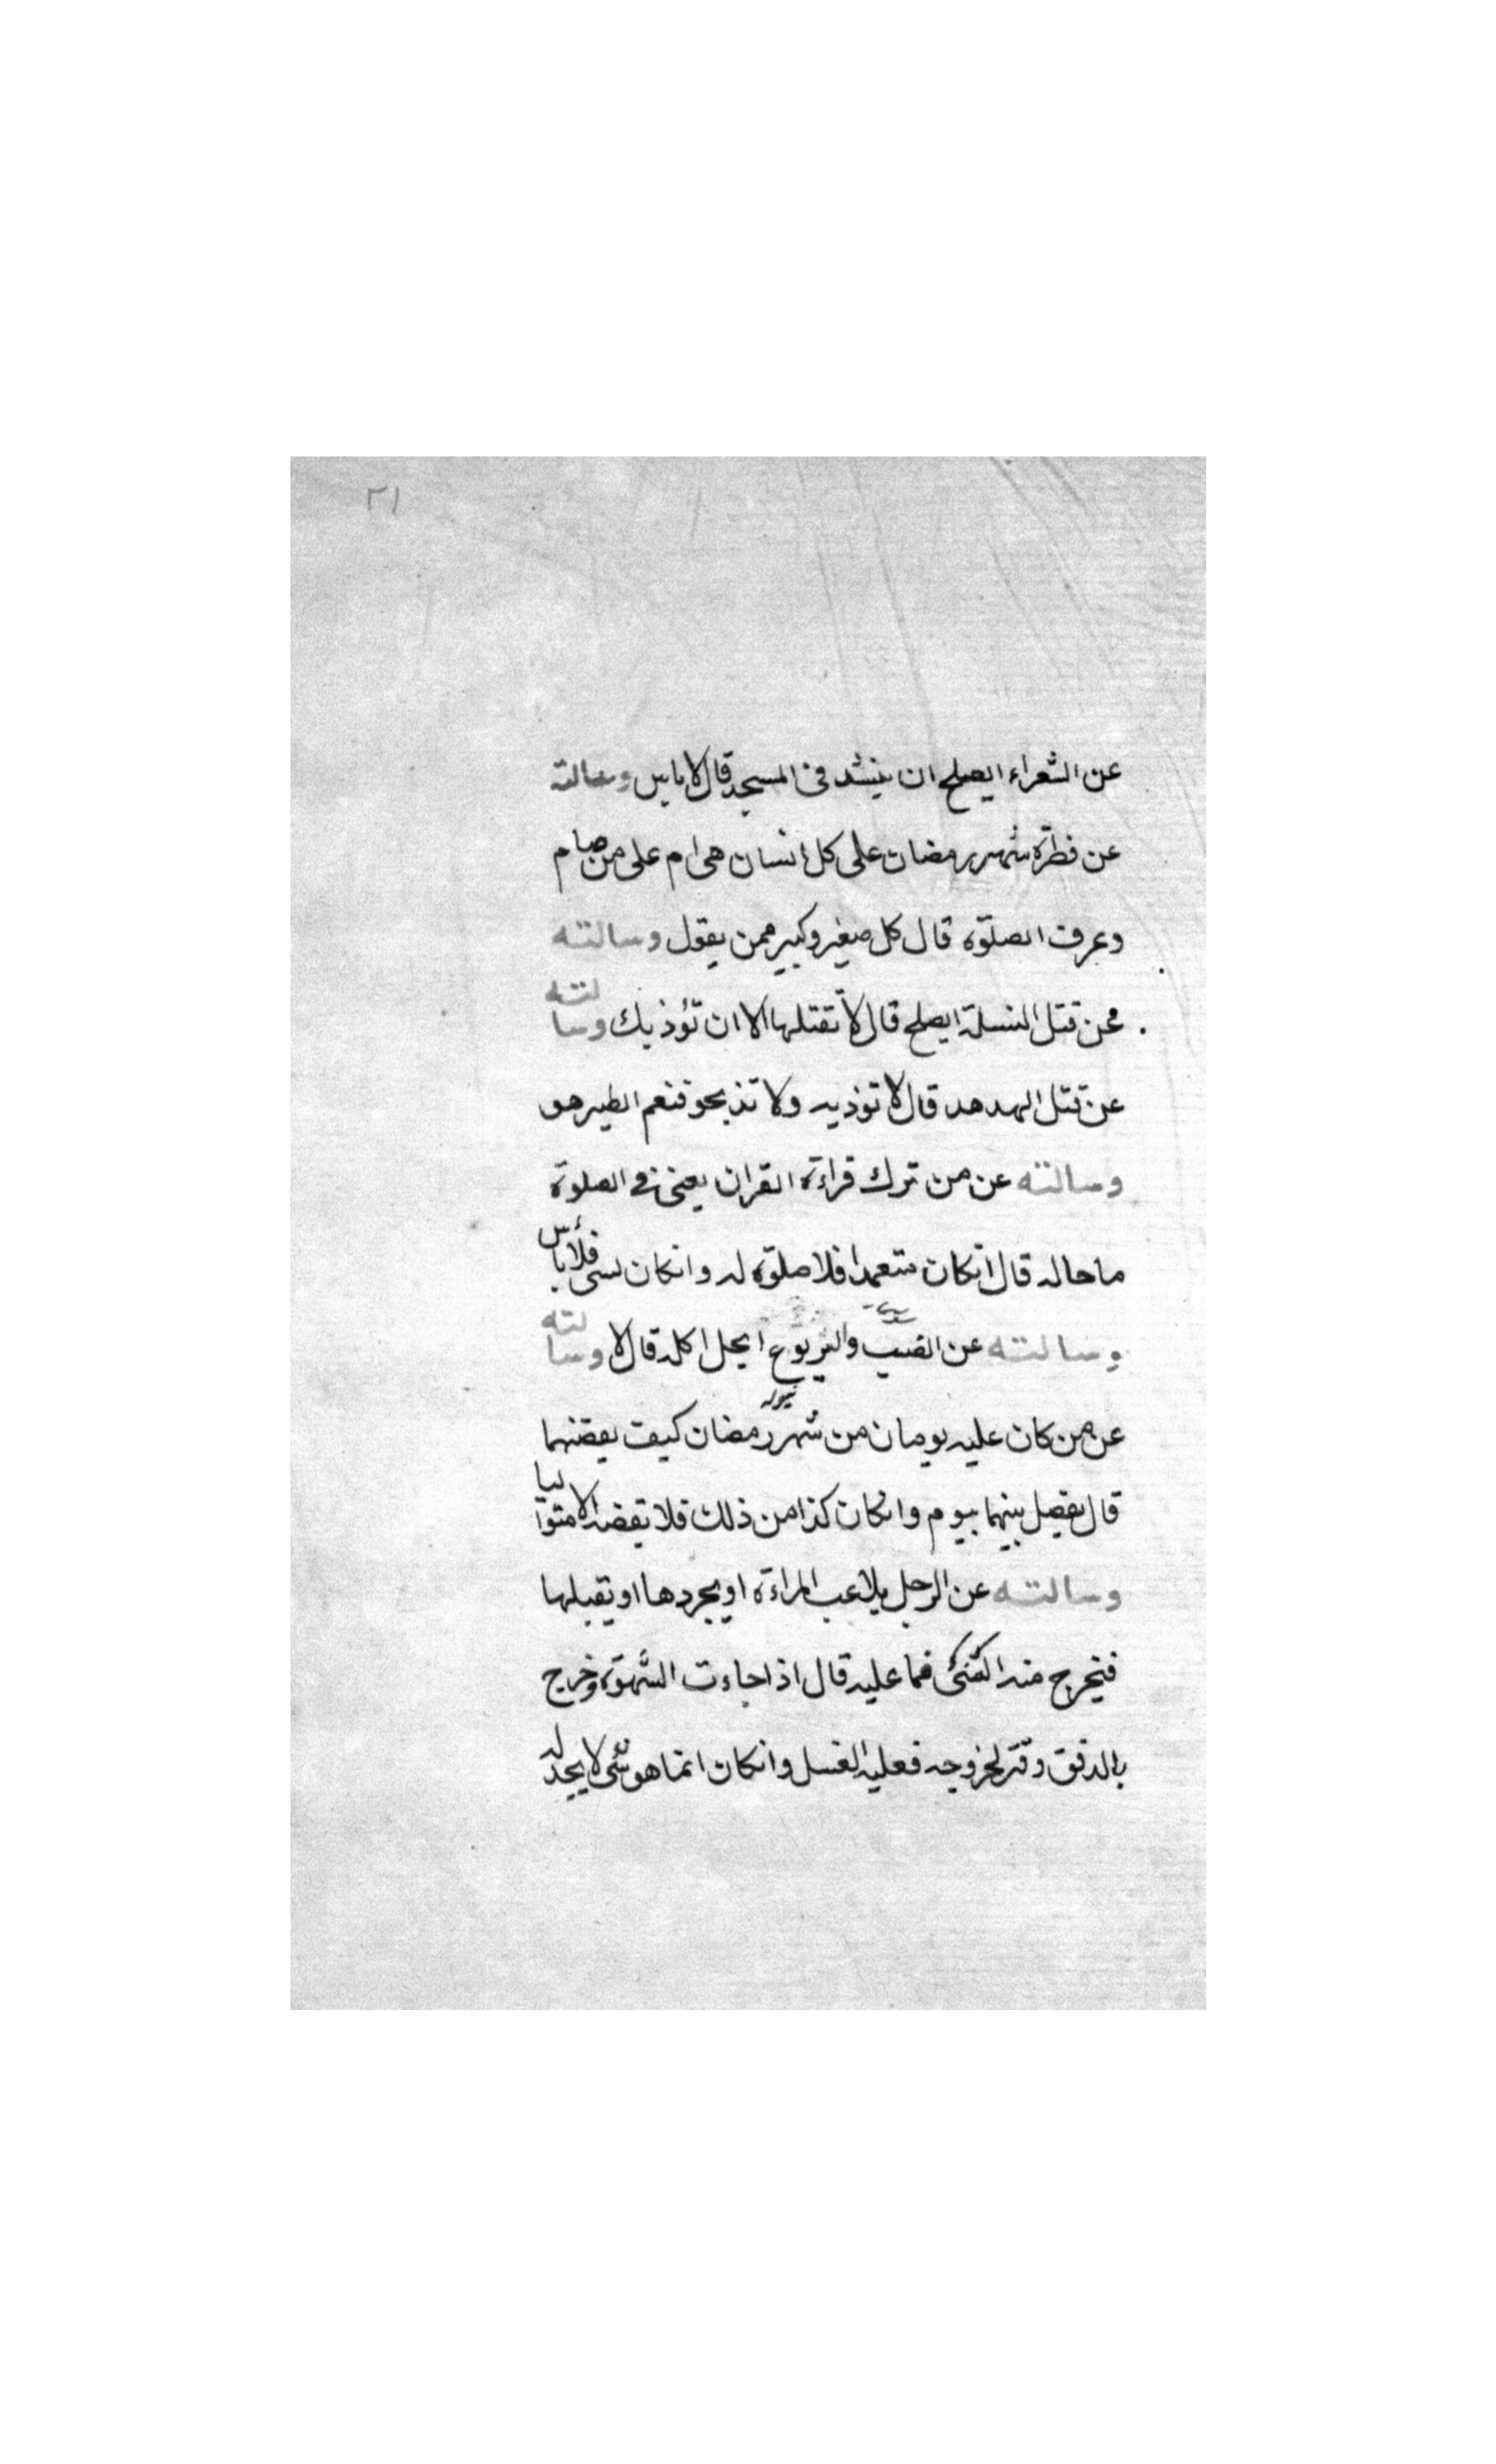 ٢١
عن الشعراء ايصلح ان ينشد فى المسجد قال لا باس وسالته
عن فطرة شهر رمضان على كل انسان هى ام على من صام
وعرف الصلوة قال كل صغير وكبير ممن يعول وسالته
عن قتل النملة ايصلح قال لا تقتلها الا ان تؤذيك وسالته
عن قتل الهدهد قال لا توذيه ولا تذبحو فنعم الطير هو
وسالته عن من ترك قراءة القران يعنى فى الصلوة
ما حاله قال انكان متعمدا فلا صلوة له وانكان نسى فلا بأس
وسالته عن الضب واليربوع ايحل اكله قال لا وسالته
عن من كان عليه يومان من شهر رمضان كيف يقضيهما
قال يفصل بينهما بيوم وانكان كذا من ذلك فلا يقضه الا متواليا
وسالته عن الرجل يلاعب المراءة او يجردها او يقبلها
فيخرج منه الشئ فما عليه قال اذا جاءت الشهوة وخرج
بالدفق وفتر لخروجه فعليه الغسل وانكان انما هو شئ لا يجد له